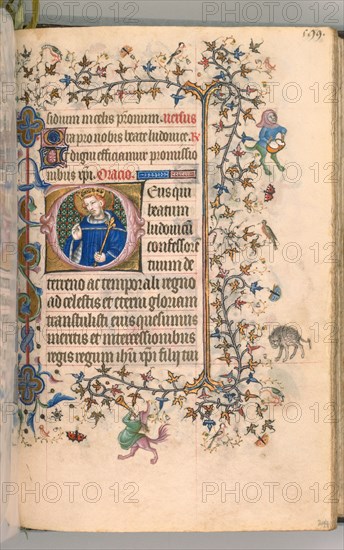 699.
sidium in celis pronum. versus
Ora pro nobis beate ludovice. R
Ut digni efficiamur promissio
nibus xpi. Oracio.
Deus qui
beatum
ludovicum
confessore
tuum de
terreno ac temporali regno
ad celestis et eterni gloriam
transtulisti eius quesumus
meritis et intercessionibus
regis regum ihu xpi filii tui
PHOTO 12